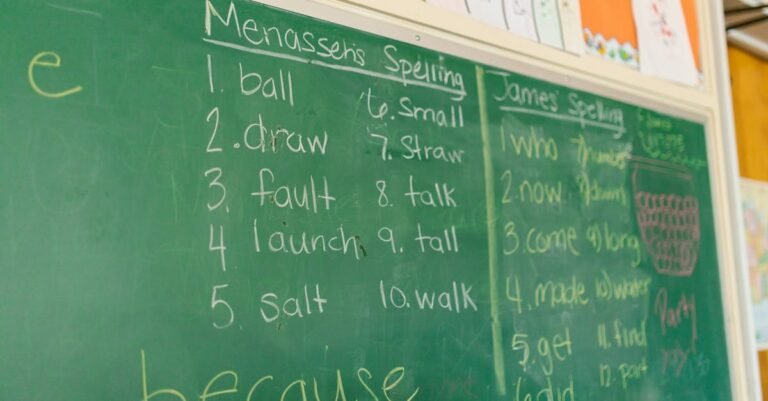 e
Menasseh's Spelling
1. ball
2. draw
3. fault
4 launch
5. salt
6. small
7. straw
8. talk
9. tall
10. walk
because
James' Spelling
1 who
2. now
3. come
4. made
5. get
6 did
7) number
8) down
9) long
10) water
11. find
12. part
Party